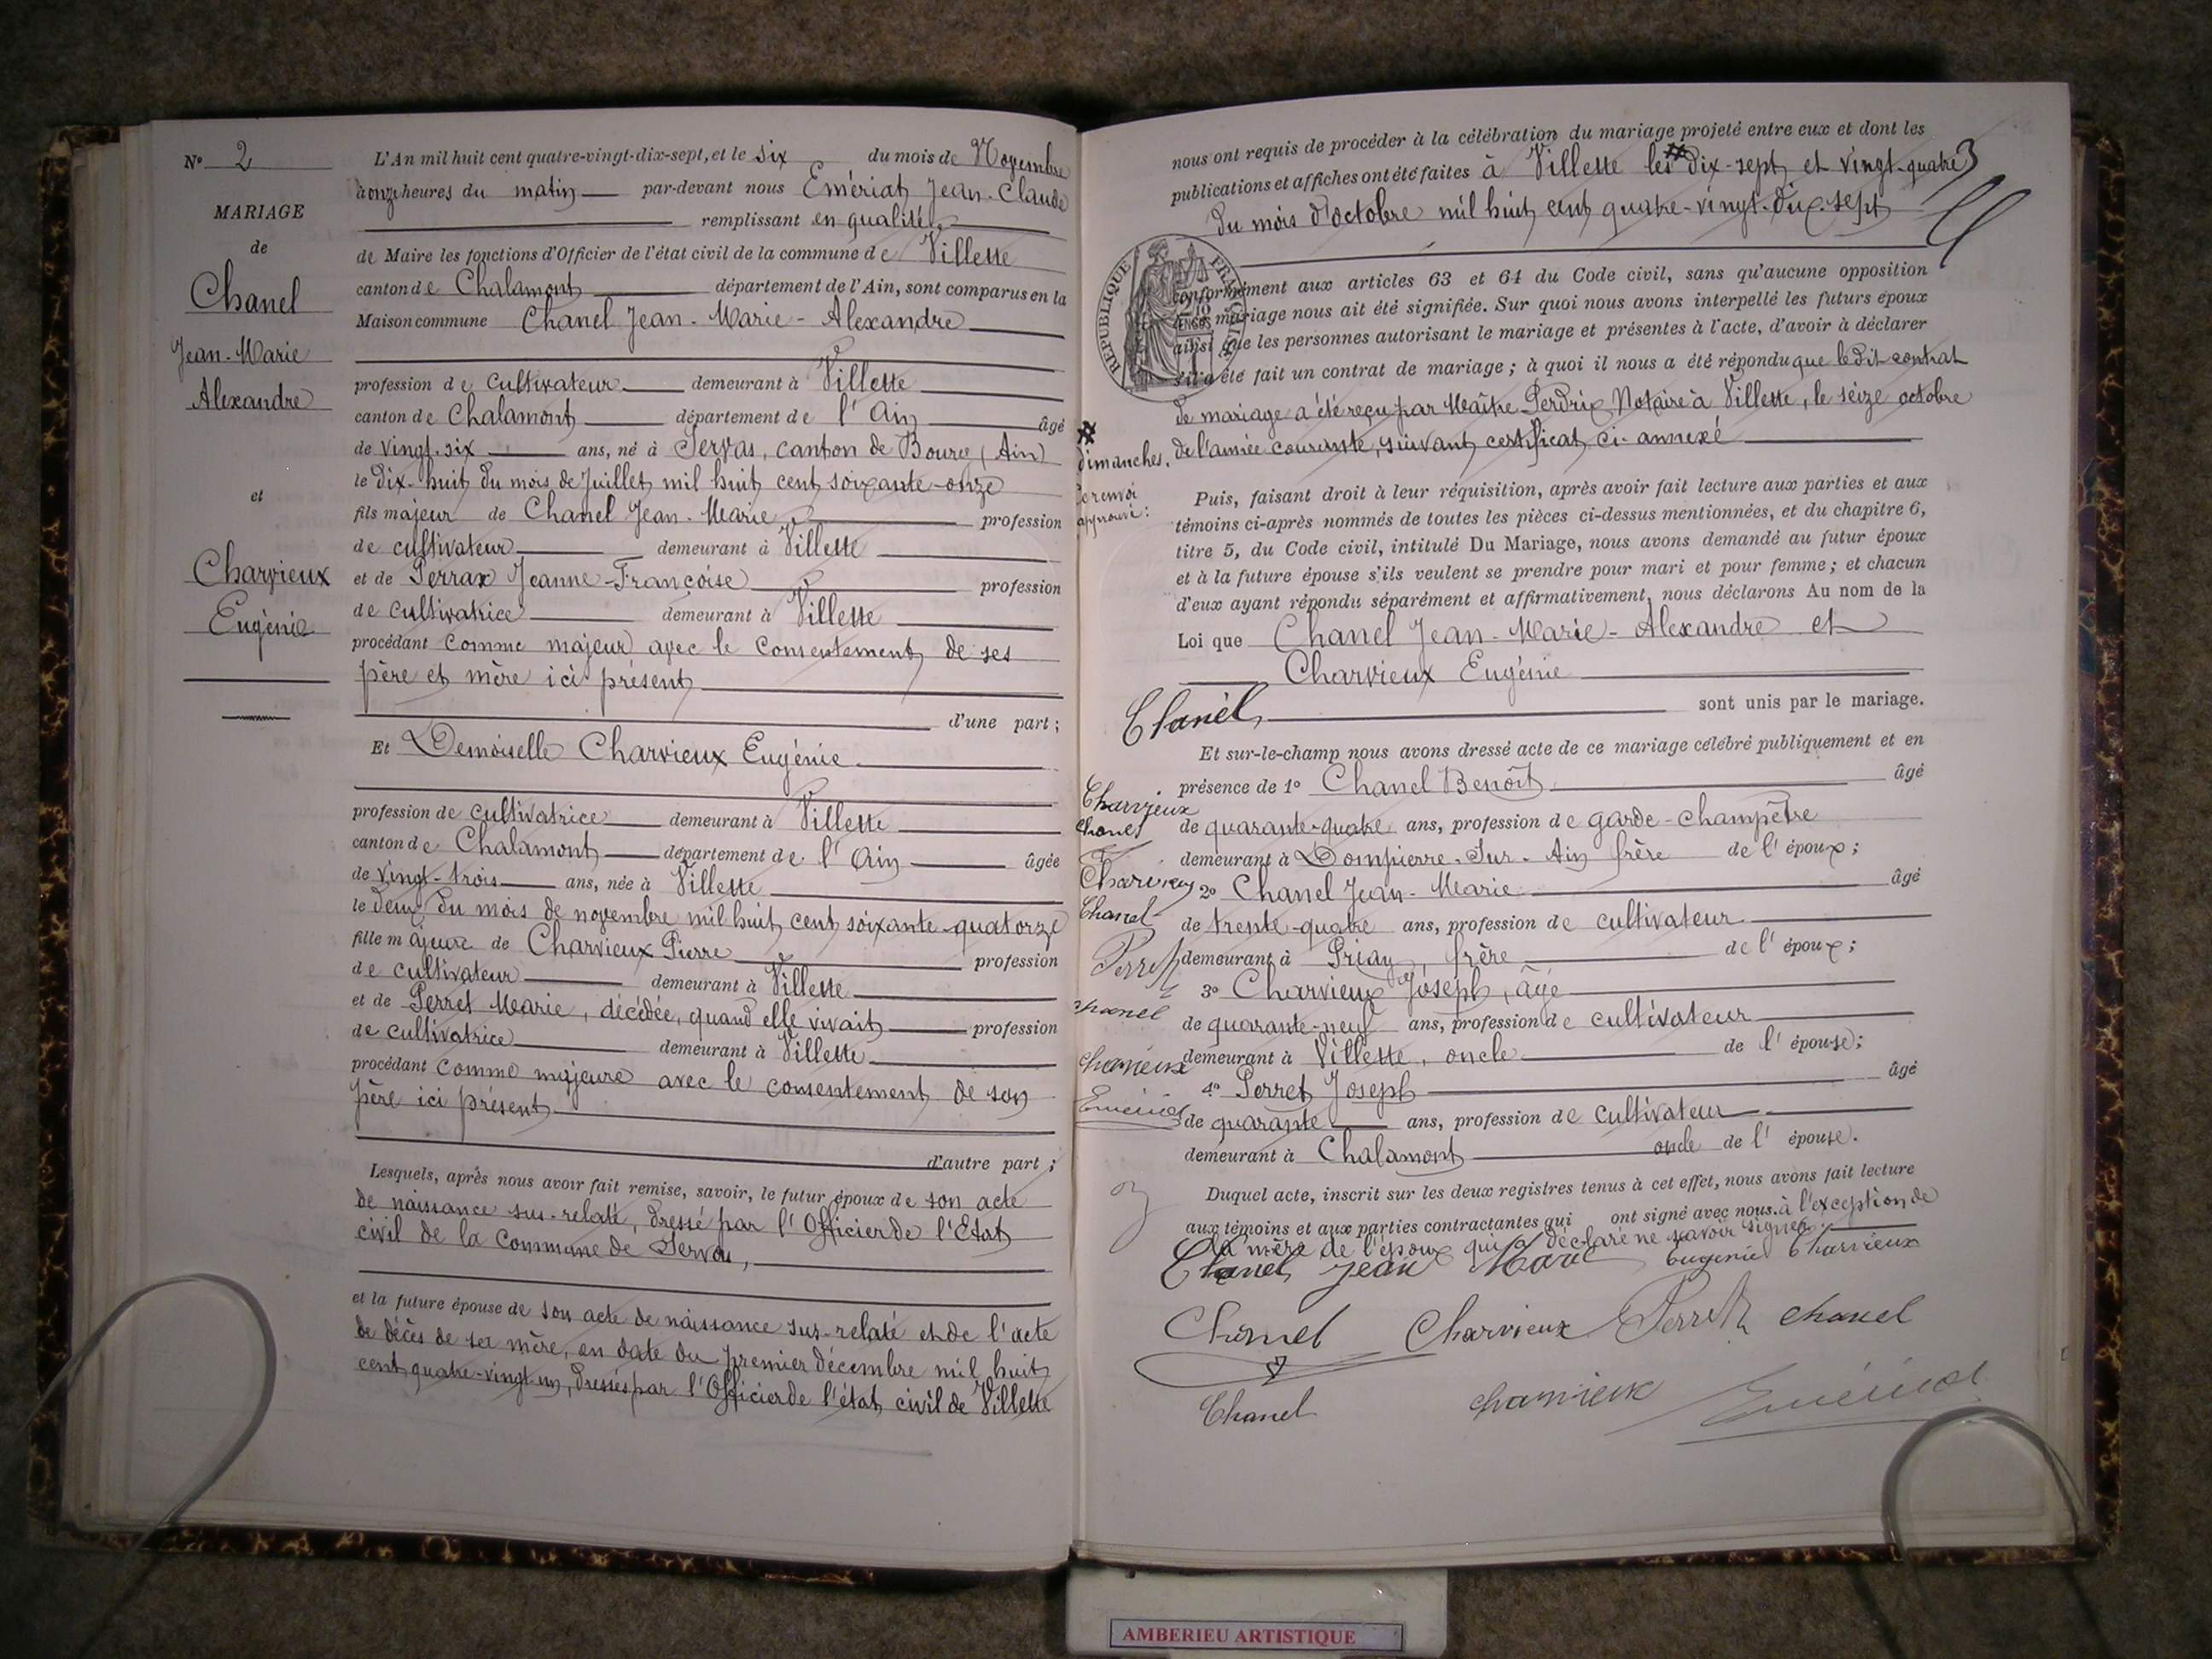 N° 2
MARIAGE
de
Chanel
Jean-Marie
Alexandre
et
Charvieux
Eugénie
L'An mil huit cent quatre-vingt-dix-sept, et le six du mois de Novembre
à onze heures du matin par-devant nous Emériat Jean-Claude
remplissant en qualité
de Maire les fonctions d'Officier de l'état civil de la commune de Villette
canton de Chalamont département de l'Ain, sont comparus en la
Maison commune Chanel Jean-Marie-Alexandre
profession de cultivateur demeurant à Villette
canton de Chalamont département de l'Ain âgé
de vingt-six ans, né à Servas, canton de Bourg (Ain)
le dix-huit du mois de Juillet mil huit cent soixante-onze
fils majeur de Chanel Jean-Marie profession
de cultivateur demeurant à Villette
et de Perrax Jeanne-Françoise profession
de cultivatrice demeurant à Villette
procédant comme majeur avec le consentement de ses
père et mère ici présent
d'une part;
Et Demoiselle Charvieux Eugénie
profession de cultivatrice demeurant à Villette
canton de Chalamont département de l'Ain âgée
de vingt-trois ans, née à Villette
le deux du mois de novembre mil huit cent soixante-quatorze
fille majeure de Charvieux Pierre profession
de cultivateur demeurant à Villette
et de Perret Marie, décédée, quand elle vivait profession
de cultivatrice demeurant à Villette
procédant comme majeure avec le consentement de son
père ici présent
d'autre part;
Lesquels, après nous avoir fait remise, savoir, le futur époux de son acte
de naissance sus-relaté, dressé par l'Officier de l'Etat
civil de la Commune de Servas,
et la future épouse de son acte de naissance sus-relaté et de l'acte
de décès de sa mère, en date du premier décembre mil huit
cent quatre-vingt-un, dressés par l'Officier de l'état civil de Villette
nous ont requis de procéder à la célébration du mariage projeté entre eux et dont les
publications et affiches ont été faites à Villette les dix-sept et vingt-quatre
du mois d'octobre mil huit cent quatre-vingt-dix-sept
RÉPUBLIQUE FRANÇAISE
conformément aux articles 63 et 64 du Code civil, sans qu'aucune opposition
mariage nous ait été signifiée. Sur quoi nous avons interpellé les futurs époux
ainsi que les personnes autorisant le mariage et présentes à l'acte, d'avoir à déclarer
s'il a été fait un contrat de mariage; à quoi il nous a été répondu que le dit contrat
de mariage a été reçu par Maître Perdrix Notaire à Villette, le seize octobre
de l'année courante, suivant certificat ci-annexé
dimanches.
Ce renvoi
approuvé:
Puis, faisant droit à leur réquisition, après avoir fait lecture aux parties et aux
témoins ci-après nommés de toutes les pièces ci-dessus mentionnées, et du chapitre 6,
titre 5, du Code civil, intitulé Du Mariage, nous avons demandé au futur époux
et à la future épouse s'ils veulent se prendre pour mari et pour femme; et chacun
d'eux ayant répondu séparément et affirmativement, nous déclarons Au nom de la
Loi que Chanel Jean-Marie-Alexandre et
Charvieux Eugénie
sont unis par le mariage.
Chanel
Charvieux
Chanel
Charvieux
Chanel
Perret
Chanel
Charvieux
Emériat
Et sur-le-champ nous avons dressé acte de ce mariage célébré publiquement et en
présence de 1° Chanel Benoît âgé
de quarante-quatre ans, profession de garde-champêtre
demeurant à Dompierre-Sur-Ain frère de l'époux;
2° Chanel Jean-Marie âgé
de trente-quatre ans, profession de cultivateur
demeurant à Priay, frère de l'époux;
3° Charvieux Joseph, âgé
de quarante-neuf ans, profession de cultivateur
demeurant à Villette, oncle de l'épouse;
4° Perret Joseph âgé
de quarante ans, profession de cultivateur
demeurant à Chalamont oncle de l'épouse.
Duquel acte, inscrit sur les deux registres tenus à cet effet, nous avons fait lecture
aux témoins et aux parties contractantes qui ont signé avec nous. à l'exception de
la mère de l'époux qui a déclaré ne savoir signer.
Chanel Jean Marie Eugénie Charvieux
Chanel Charvieux Perret Chanel
Chanel Charvieux Emériat
AMBERIEU ARTISTIQUE